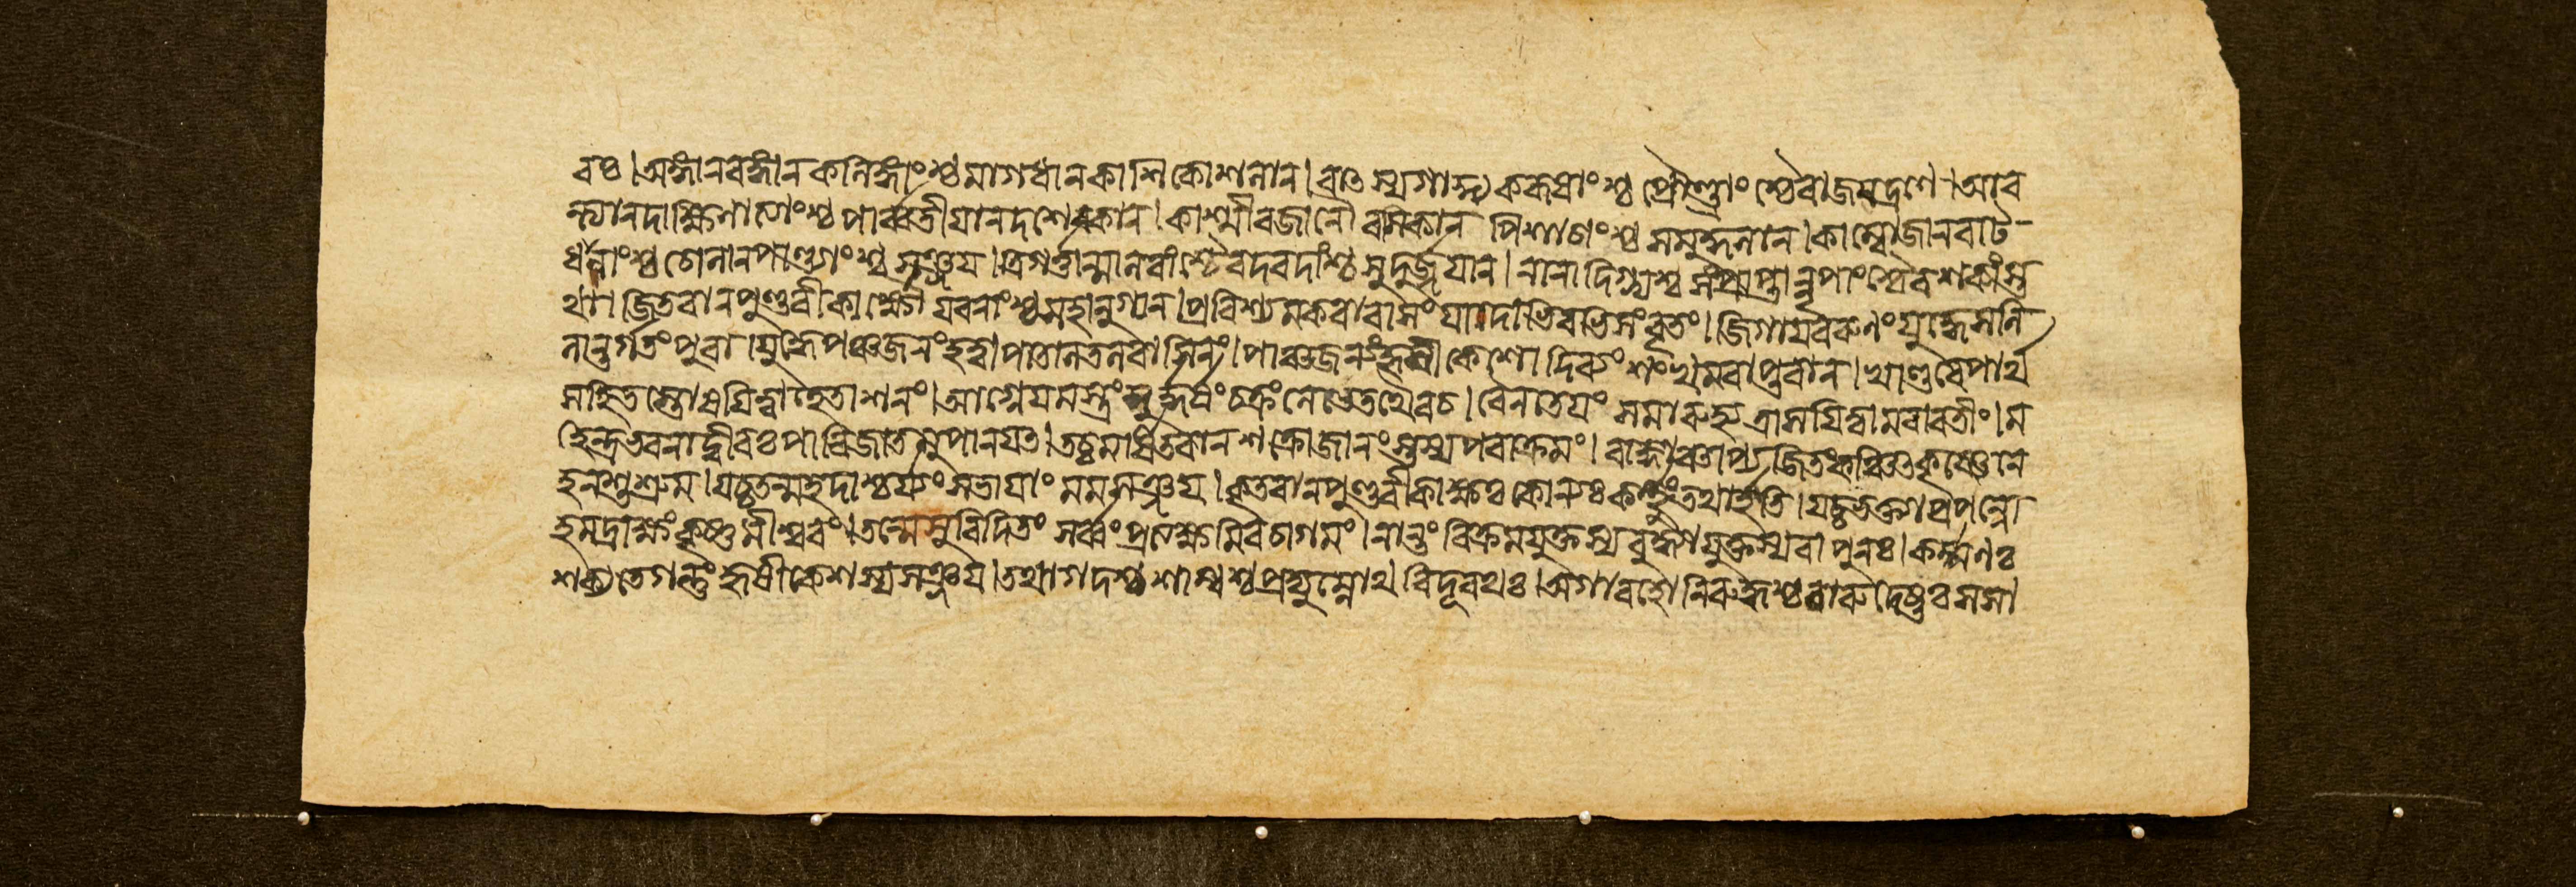 রঃ। অঙ্গান বঙ্গান কলিঙ্গাংশ্চ মাগধান কাশিকোশলান। বাৎস্যগার্গ্য করূষাংশ্চ পৌণ্ড্রাংশ্চৈবাজয়দ্রণে। আব
ন্ত্যান দাক্ষিণাত্যাংশ্চ পার্ব্বতীয়ান দশেরকান। কাশ্মীরজানৌরসিকান পিশাচাংশ্চ সমুদ্গলান। কাম্বোজান বাট
ধানাংশ্চ চোলান পাণ্ড্যাংশ্চ সঞ্জয়। ত্রিগর্ত্তান্মালবাংশ্চৈব দরদাংশ্চ সুদুর্জয়ান। নানাদিগ্ভ্যশ্চ সংপ্রাপ্তান শকাংস্ত
থা। জিতবান পুণ্ডরীকাক্ষো যবনাংশ্চ সহানুগান। প্রবিশ্য মকরাবাসং যাদোভিরভিসংবৃতং। জিগায় বরুণং যুদ্ধে সলি
লান্তর্গতং পুরা। যুদ্ধে পঞ্চজনং হত্বা পাতালতলবাসিনং। পাঞ্চজন্যং হৃষীকেশো দিব্যং শংখমবাপ্তবান। খাণ্ডবে পার্থ
সহিতস্তোষয়িত্বা হুতাশনং। আগ্নেয়মস্ত্রং দুর্দ্ধর্ষং চক্রং লেভে তথৈব চ। বৈনতেয়ং সমারুহ্য ত্রাসয়িত্বামরাবতীং। ম
হেন্দ্রভবনাদ্বীরঃ পারিজাতমুপানয়ত। তচ্চ মর্ষিতবান শক্রো জানংস্তস্য পরাক্রমং। রাজ্ঞাং চাপ্যজিতং কঞ্চিৎ কৃষ্ণেনে
হ ন শুশ্রুম। যচ্চ তন্মহদাশ্চর্য্যং সভায়াং মম সঞ্জয়। কৃতবান পুণ্ডরীকাক্ষঃ কোন্যঃ কর্ত্তুং তথার্হতি। যচ্চ ভক্ত্যা প্রপন্নো
হমদ্রাক্ষং কৃষ্ণমীশ্বরং। তন্মে সুবিদিতং সর্ব্বং প্রত্যক্ষমিব চাগমং। নান্তং বিক্রমযুক্তস্য বুদ্ধ্যা যুক্তস্য বা পুনঃ। কর্ম্মণঃ
শক্যতে গন্তুং হৃষীকেশস্য সঞ্জয়। তথা গদশ্চ শাম্বশ্চ প্রদ্যুম্নোথ বিদূরথঃ। অগাবহো নিরুদ্ধশ্চ চারুদেষ্ণঃ সসা